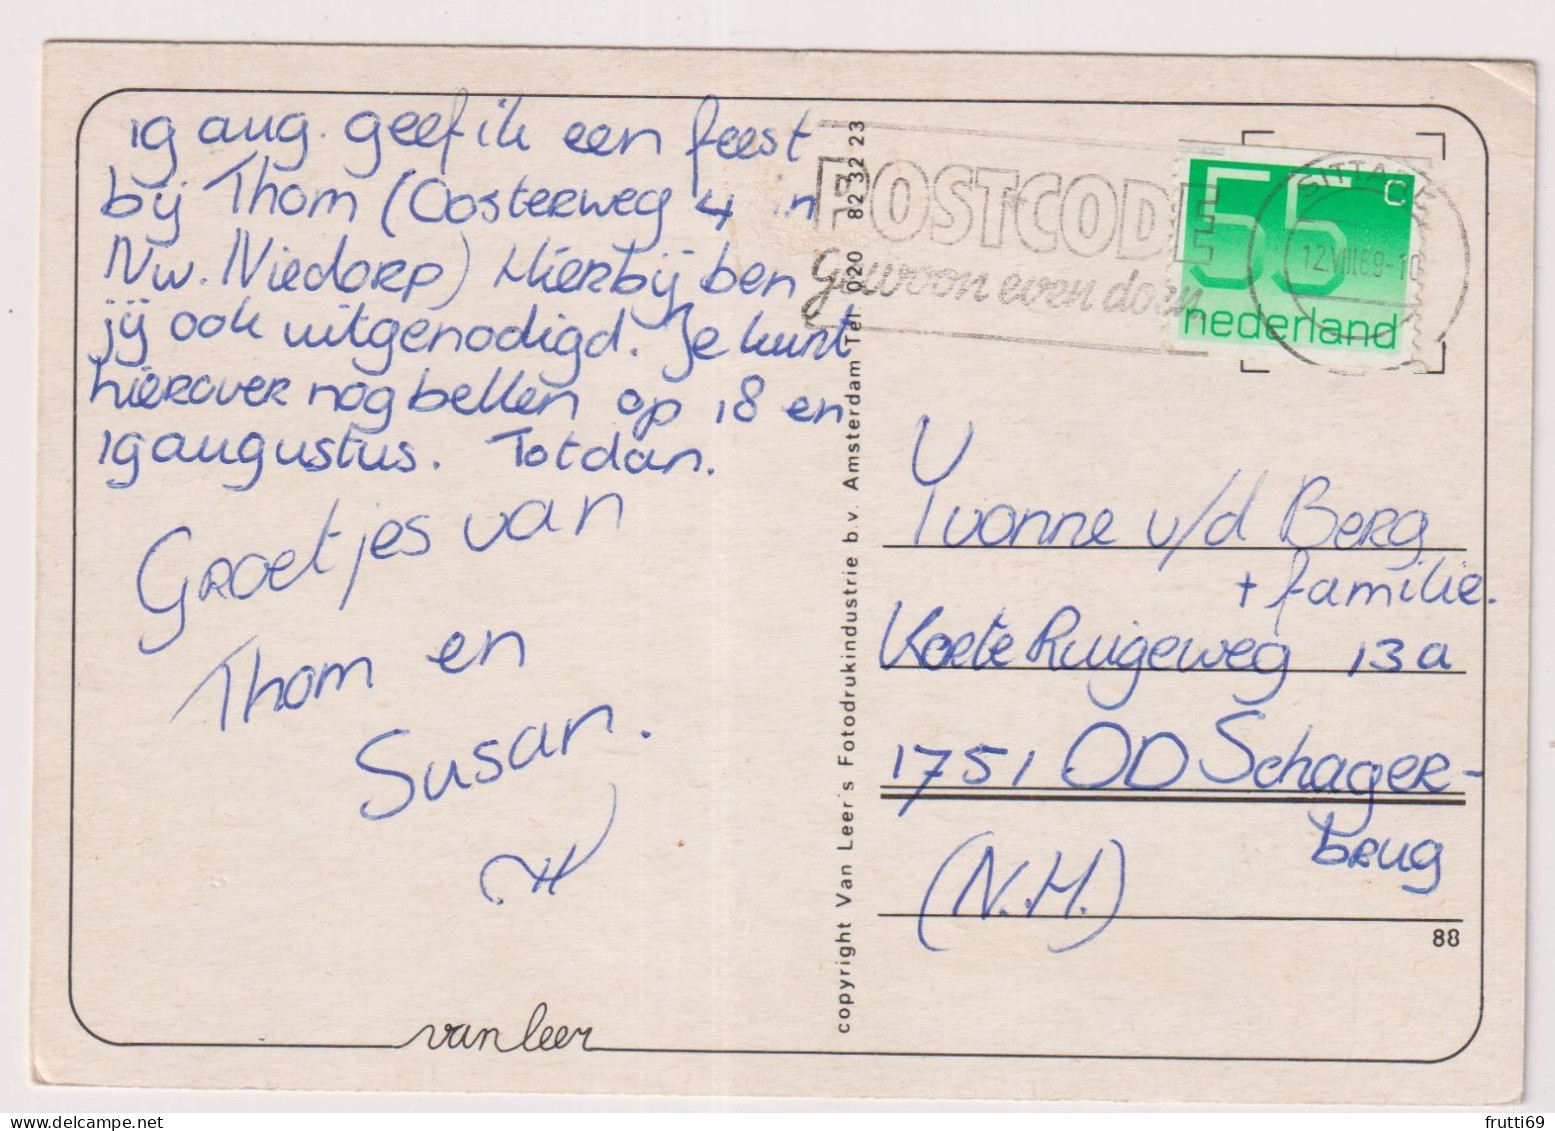 19 aug. geef ik een feest
bij Thom (Oosterweg 4 in
Nw. Niedorp) Hierbij ben
jij ook uitgenodigd. Je kunt
hierover nog bellen op 18 en
19 augustus. Tot dan.
Groetjes van
Thom en
Susan.
van leer
copyright Van Leer's Fotodrukindustrie b.v. Amsterdam Tel 020 82 32 23
POSTCODE
gewoon even doen
55 c
nederland
SITTARD
12.VIII.89-1
Yvonne v/d Berg
+ familie.
Korte Ruigeweg 13a
1751 OD Schager-
brug
(N.H.)
88
frutti69